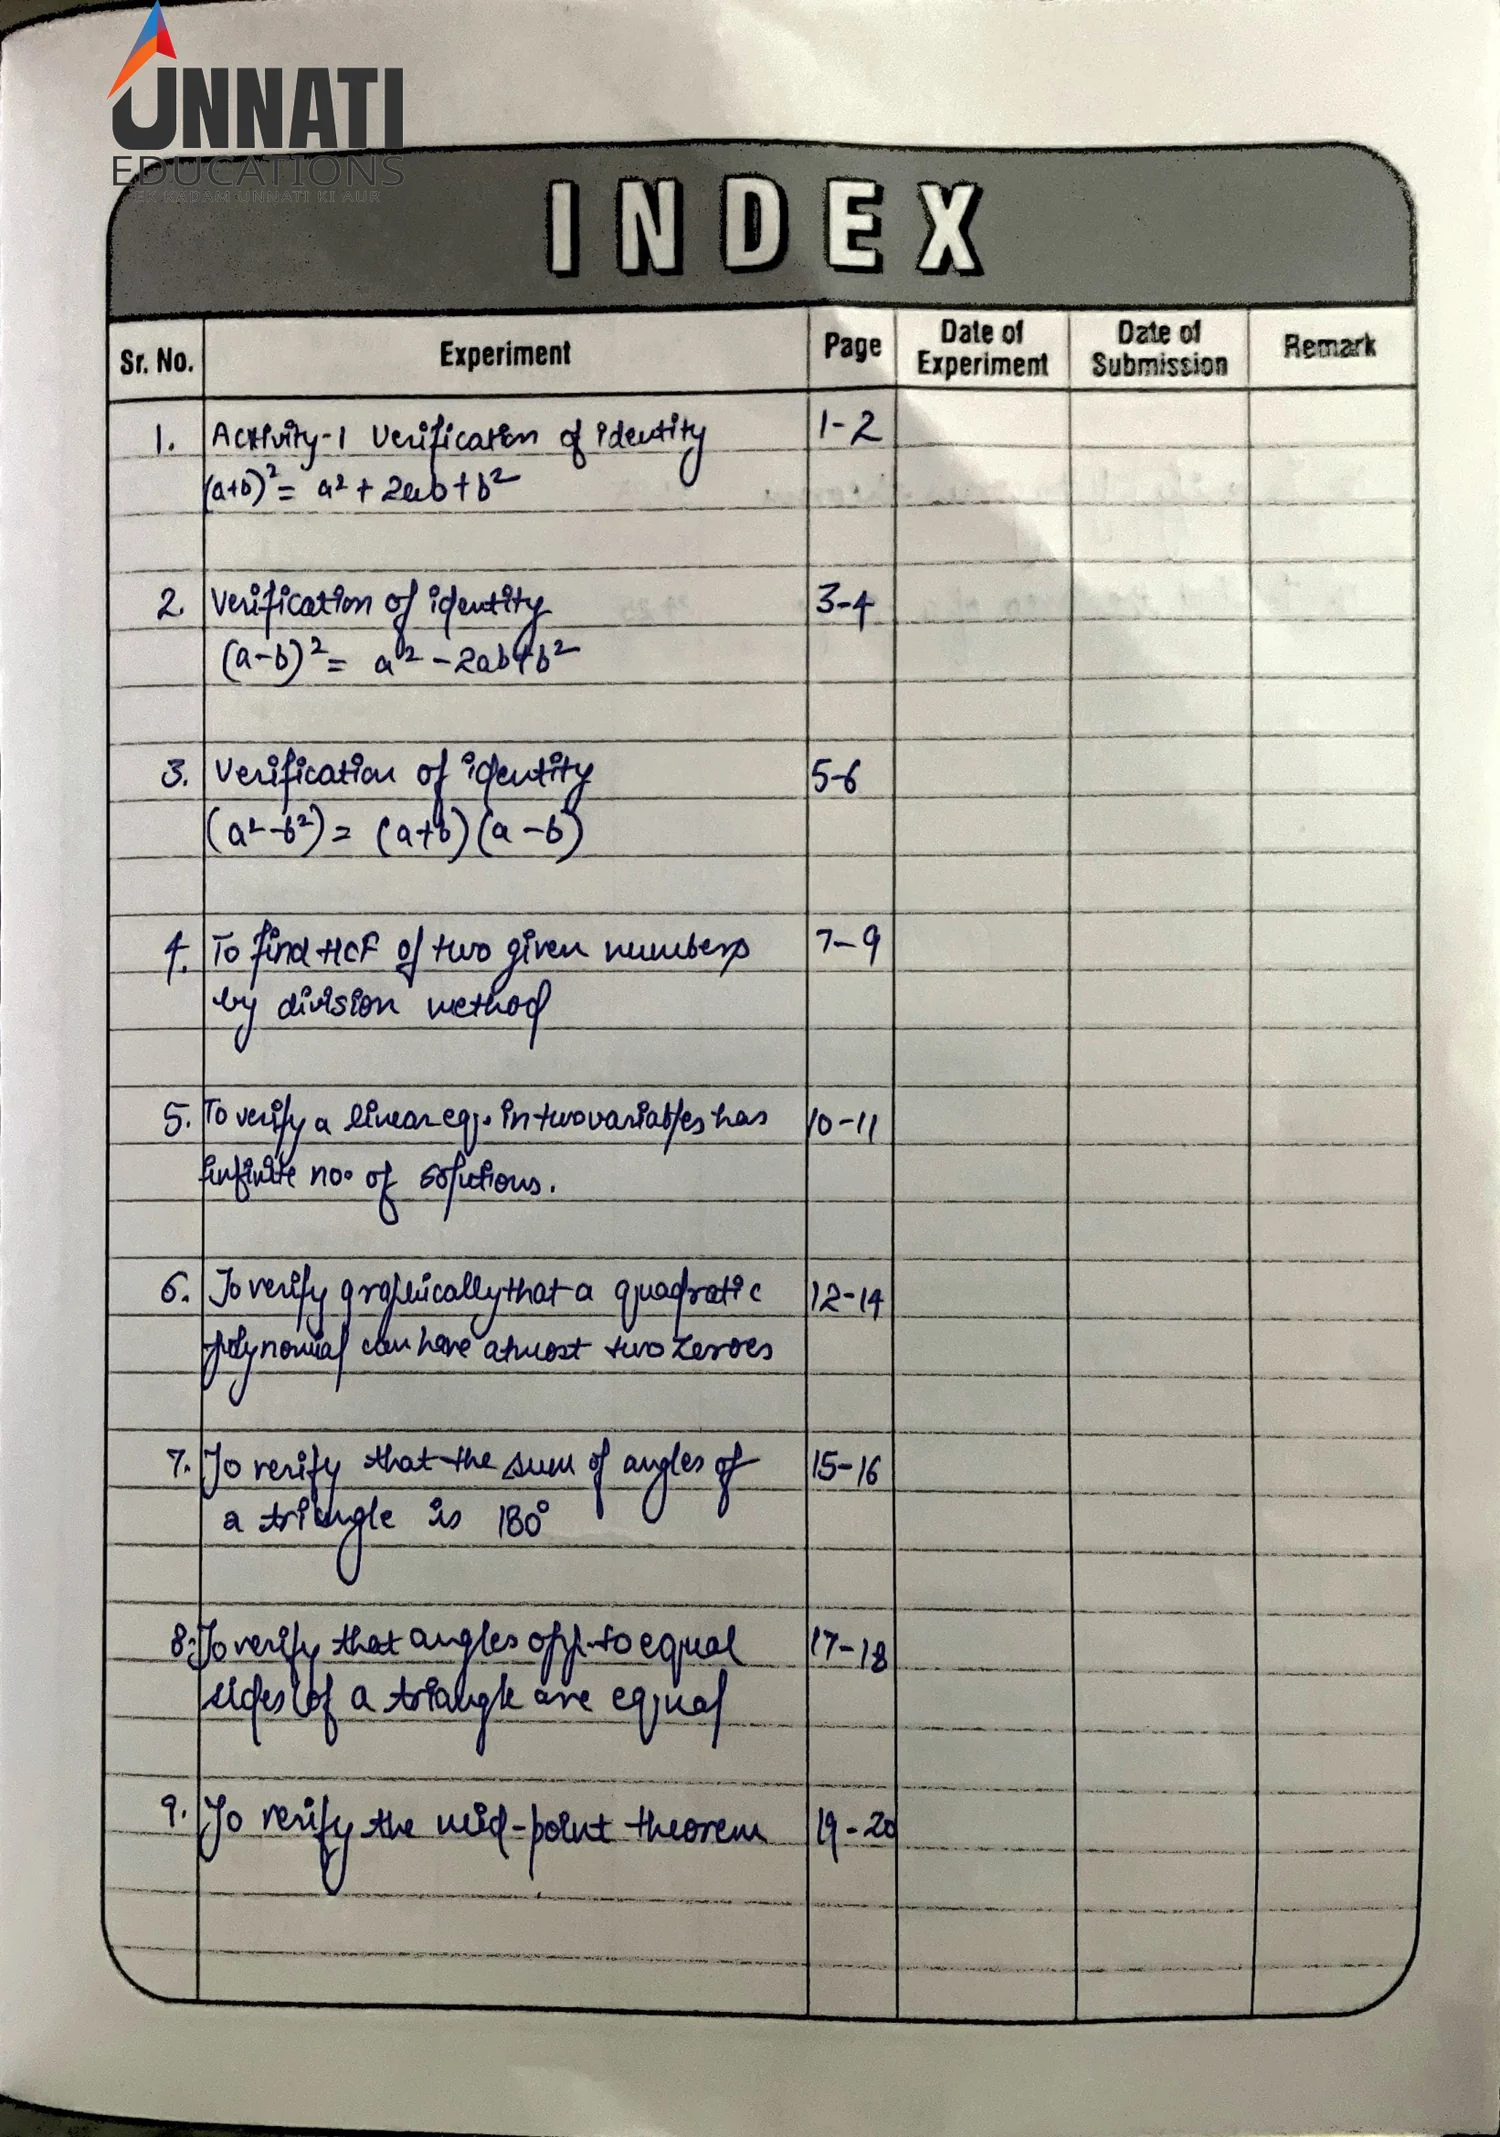 UNNATI
EDUCATIONS
EK KADAM UNNATI KI AUR
INDEX
Sr. No. Experiment Page Date of Experiment Date of Submission Remark
1. Activity-1 Verification of identity 1-2
(a+b)²= a² + 2ab + b²
2. Verification of identity 3-4
(a-b)²= a² - 2ab + b²
3. Verification of identity 5-6
(a²-b²) = (a+b)(a-b)
4. To find HCF of two given numbers 7-9
by division method
5. To verify a linear eq. in two variables has 10-11
infinite no. of solutions.
6. To verify graphically that a quadratic 12-14
polynomial can have atmost two zeroes
7. To verify that the sum of angles of 15-16
a triangle is 180°
8. To verify that angles opp. to equal 17-18
sides of a triangle are equal
9. To verify the mid-point theorem 19-20